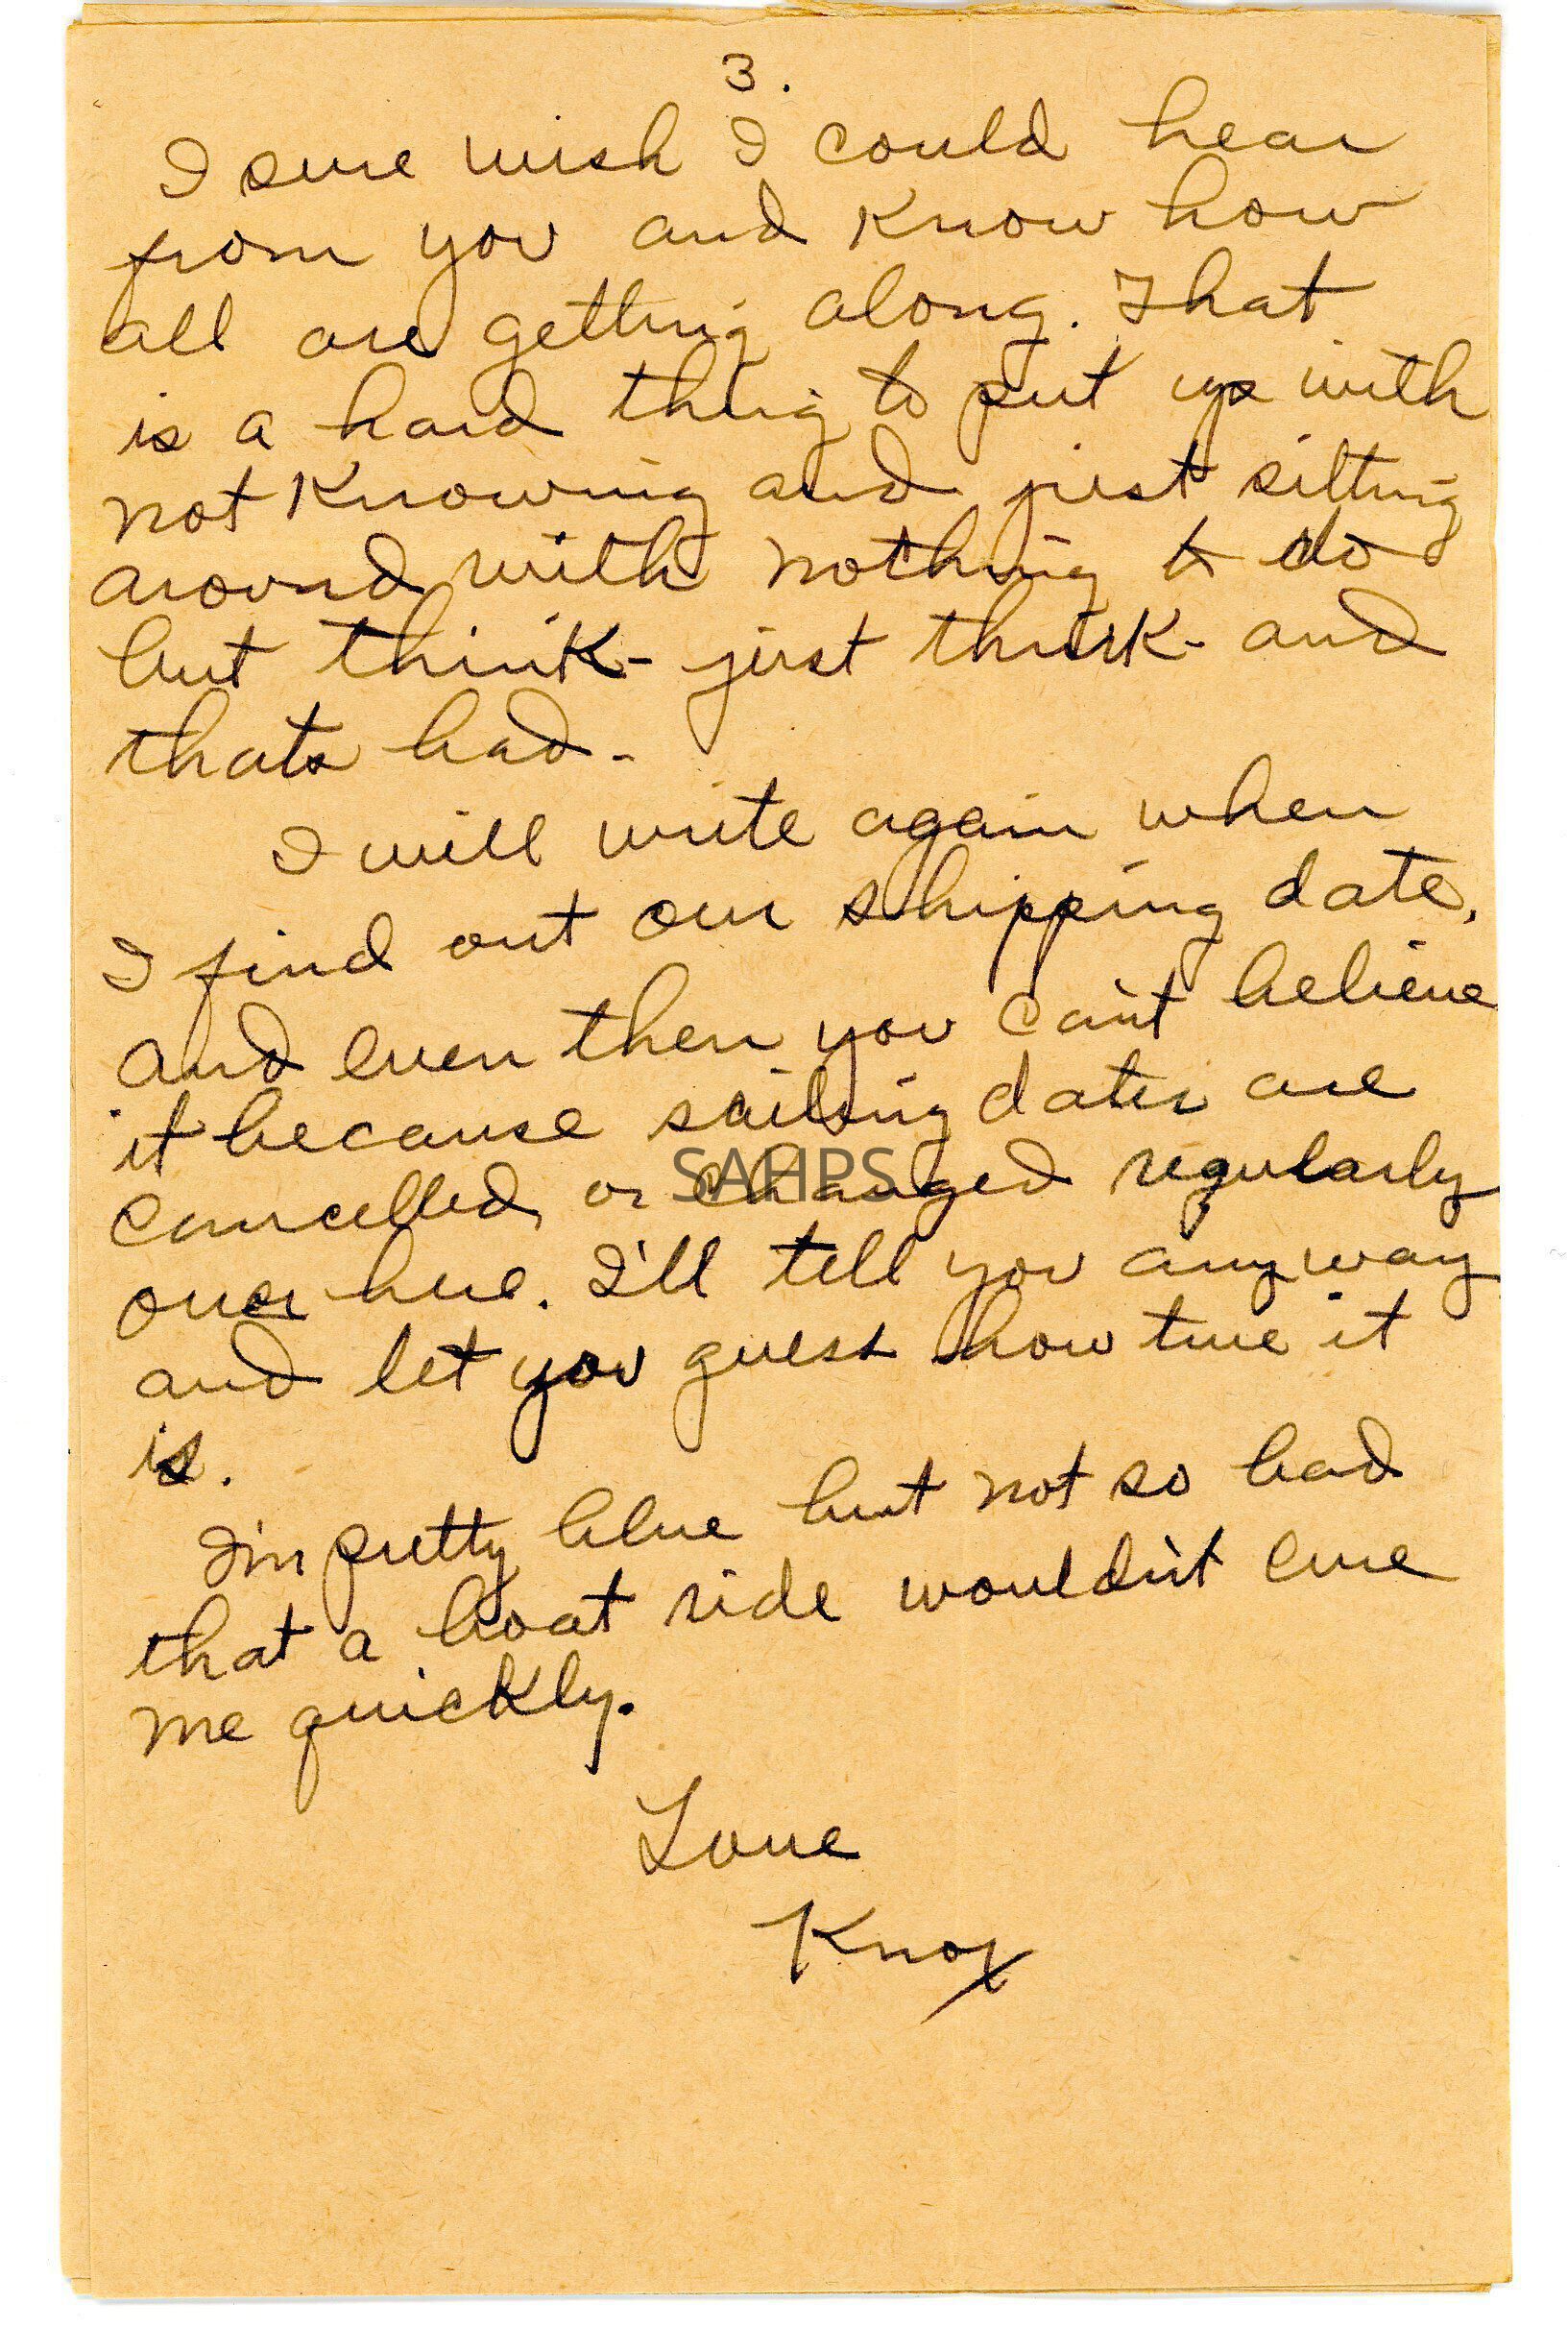 3.
I sure wish I could hear
from you and know how
all are getting along. That
is a hard thing to put up with
not knowing and just sitting
around with nothing to do
but think - just think - and
thats bad -
I will write again when
I find out our shipping date,
and even then you can't believe
it because sailing dates are
cancelled or changed regularly
SAHPS
over here. I'll tell you anyway
and let you guess how true it
is.
I'm pretty blue but not so bad
that a boat ride wouldn't cure
me quickly.
Love
Knox